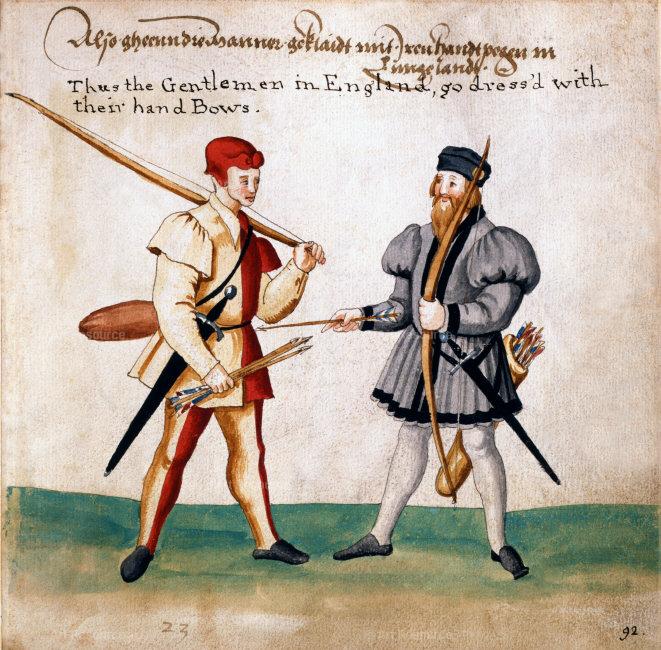 Also gheenn die Manner geklaidt mit Iren handt pogen in
Enngelandt.
Thus the Gentlemen in England, go dress'd with
their hand Bows.
23
92.